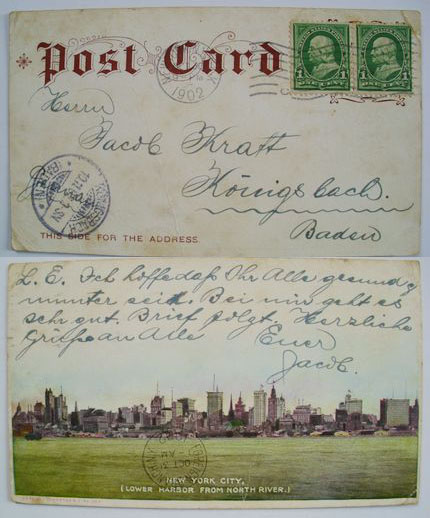 Post Card
1902
1 1
1 1
Herrn
Jacob Kraft
Königsbach.
Baden
THIS SIDE FOR THE ADDRESS.
L. E. Ich hoffe daß Ihr Alle gesund &
munter seit. Bei mir geht es
sehr gut. Brief folgt. Herzliche
Grüße an Alle Euer
Jacob.
NEW YORK CITY,
(LOWER HARBOR FROM NORTH RIVER.)